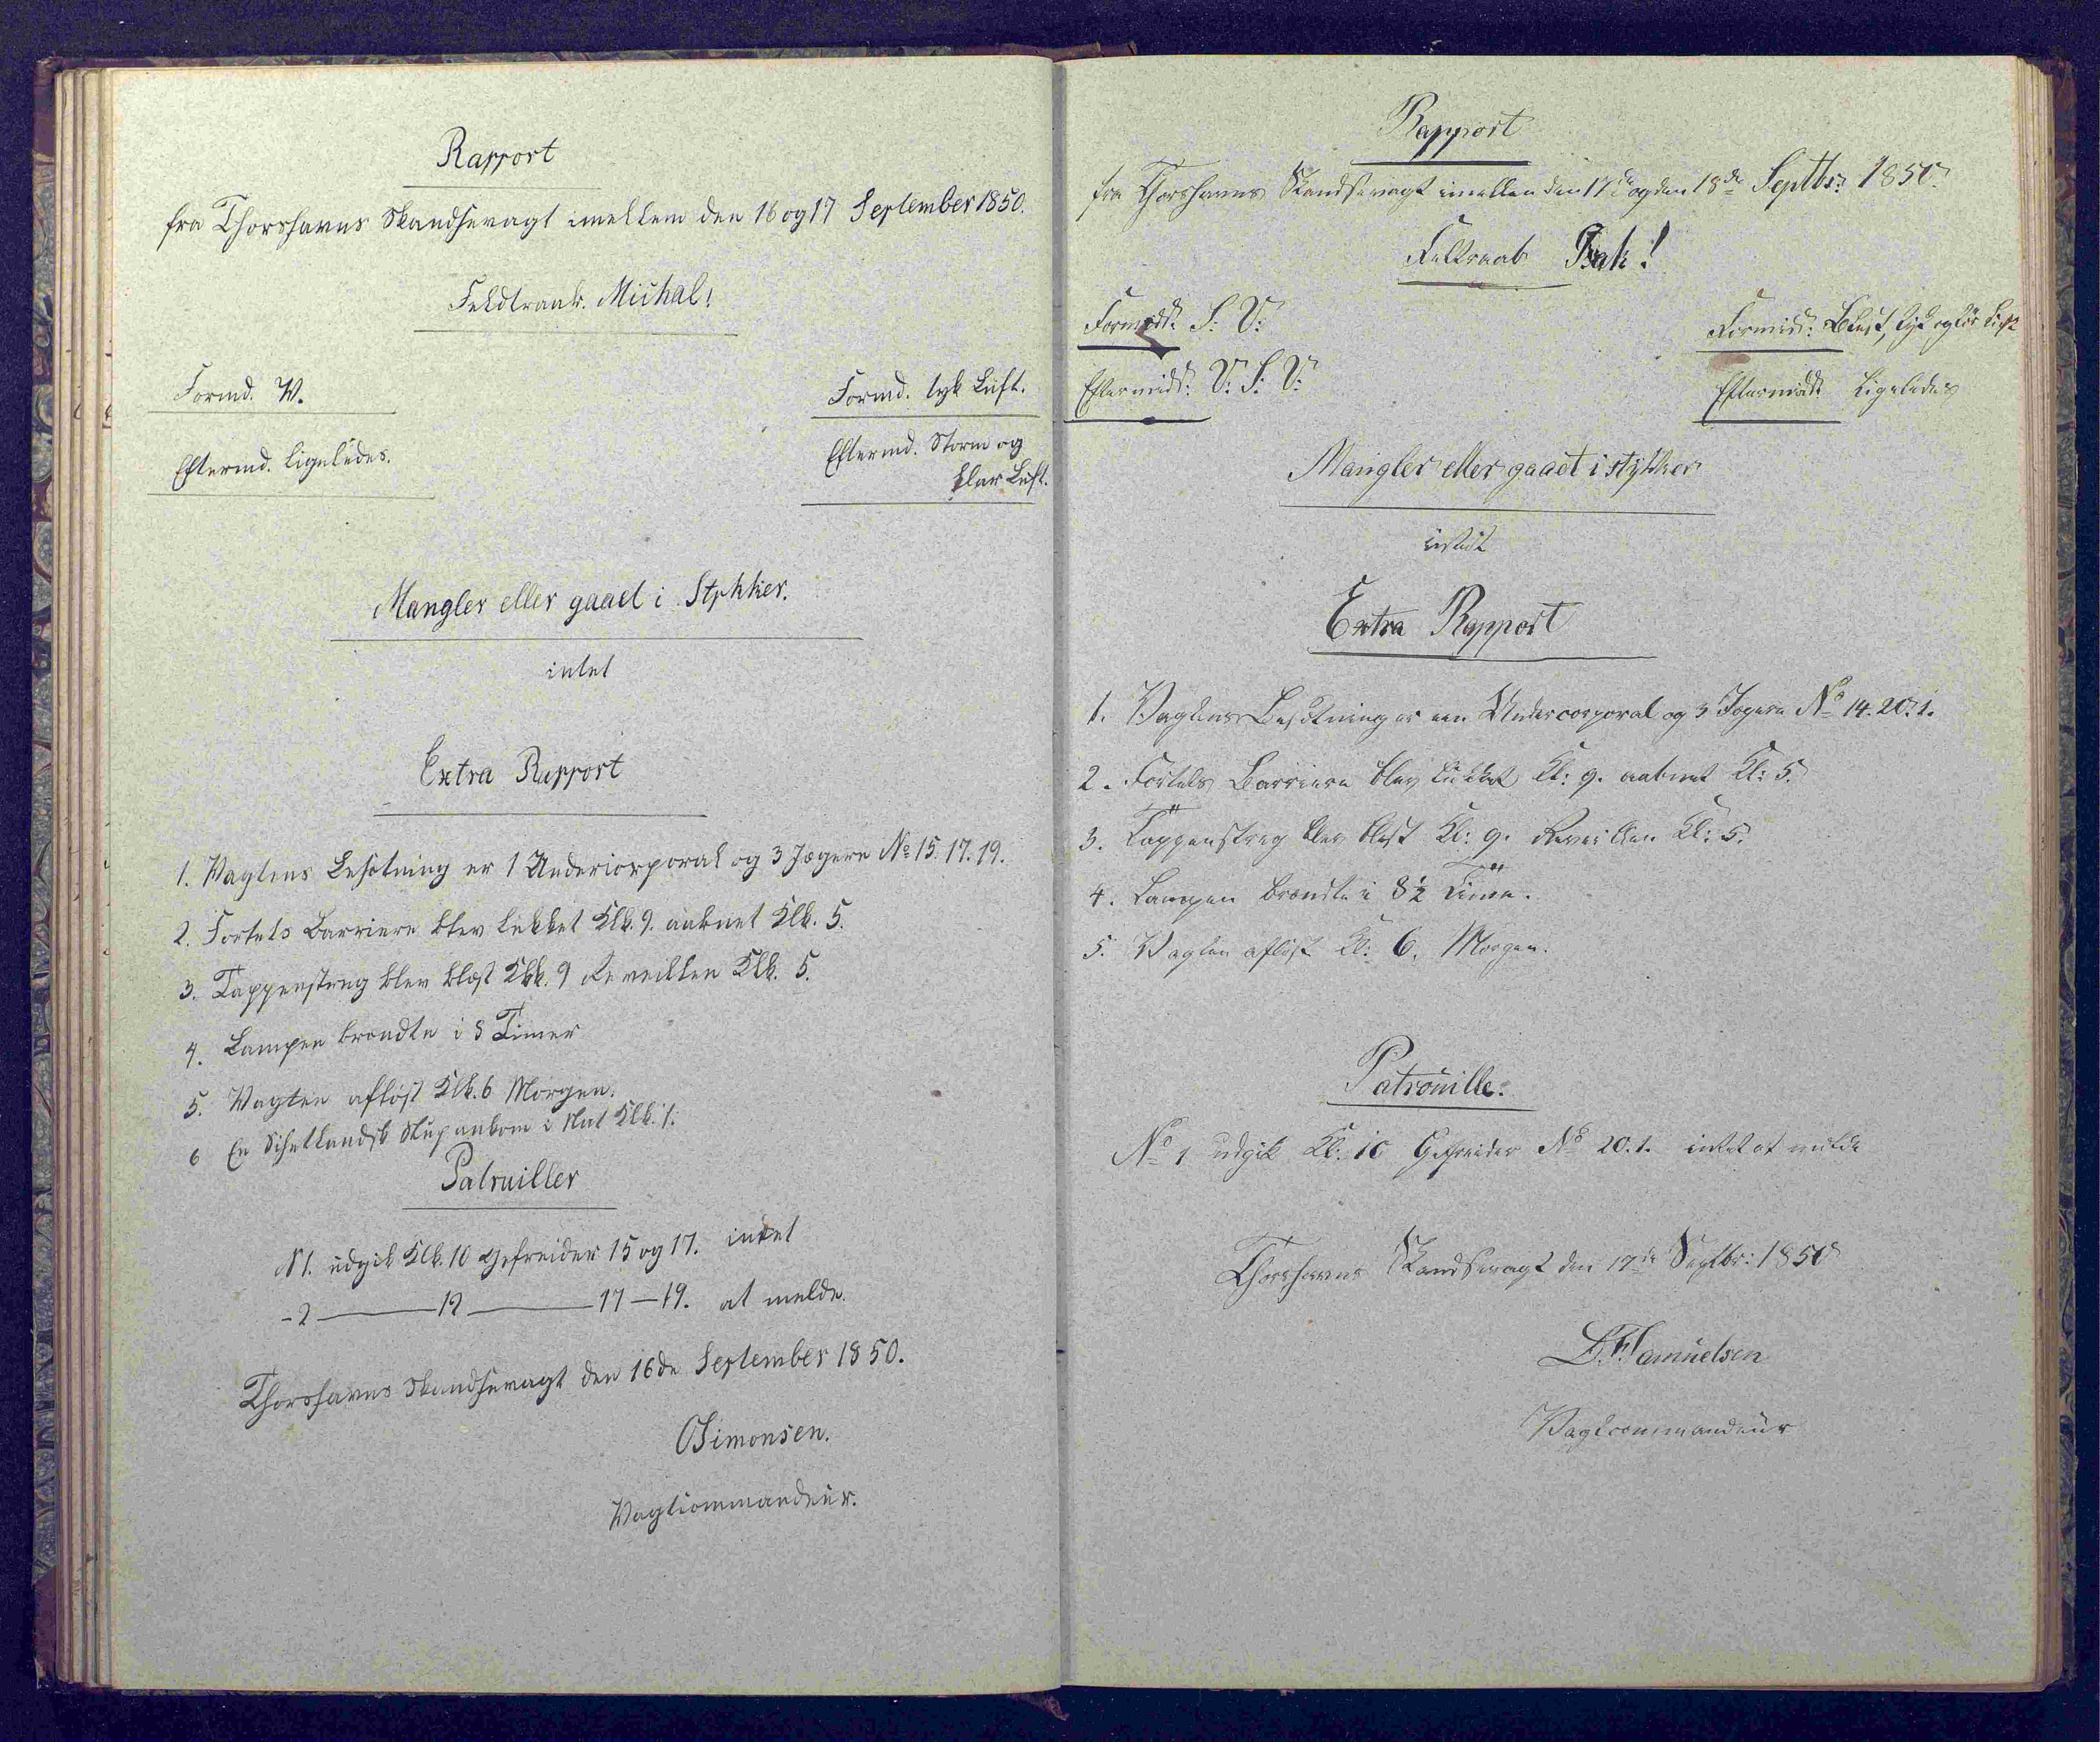 Rapport
fra Thorshavns Skandsevagt imellem den 16 og 17 September 1850.
Feldtraab. Michal!
Formd. V.
Formd. tyk Luft.
Eftermd. ligeledes.
Eftermd. Storm og
klar Luft.
Mangler eller gaaet i Stykker.
intet
Extra Rapport
1. Vagtens Besætning er 1 Undercorporal og 3 Jægere No 15. 17. 19.
2. Fortets Barriere blev lukket Klk. 9. aabnet Klk. 5.
3. Tappenstreg blev blæst Klk. 9 Reveillen Klk. 5.
4. Lampen brændte i 8 Timer
5. Vagten afløst Klk. 6 Morgen.
6 En Schetlandsk Slup ankom i Nat Klk. 1.
Patruiller
N 1. udgik Klk. 10 Gefreider 15 og 17. intet
- 2 — 12 — 17 — 19. at melde.
Thorshavns Skandsevagt den 16de September 1850.
OSimonsen.
Vagtcommandeur.
Rapport
fra Thorshavns Skandsevagt imellem den 17de og den 18de Septbr: 1850
Feltraab Isak!
Formidd: S: V:
Formidd: Blæst, tyk og
Eftermidd: V: S: V:
Eftermidd: Ligeledes
Mangler eller gaaet i stykker
intet
Extra Rapport
1. Vagtens Besætning er een Undercorporal og 3 Jægere No 14. 20. 1.
2. Fortets Barriere blev lukket Kl: 9. aabnet Kl: 5.
3. Tappenstreg blev blæst Kl: 9. Reveillen Kl: 5.
4. Lampen brændte i 8½ Time.
5. Vagten afløst Kl: 6. Morgen.
Patrouille.
No 1 udgik Kl: 10 Gefreider No 20. 1. intet at melde
Thorshavns Skandsevagt den 17de Septbr: 1850
Samuelsen
Vagtcommandeur